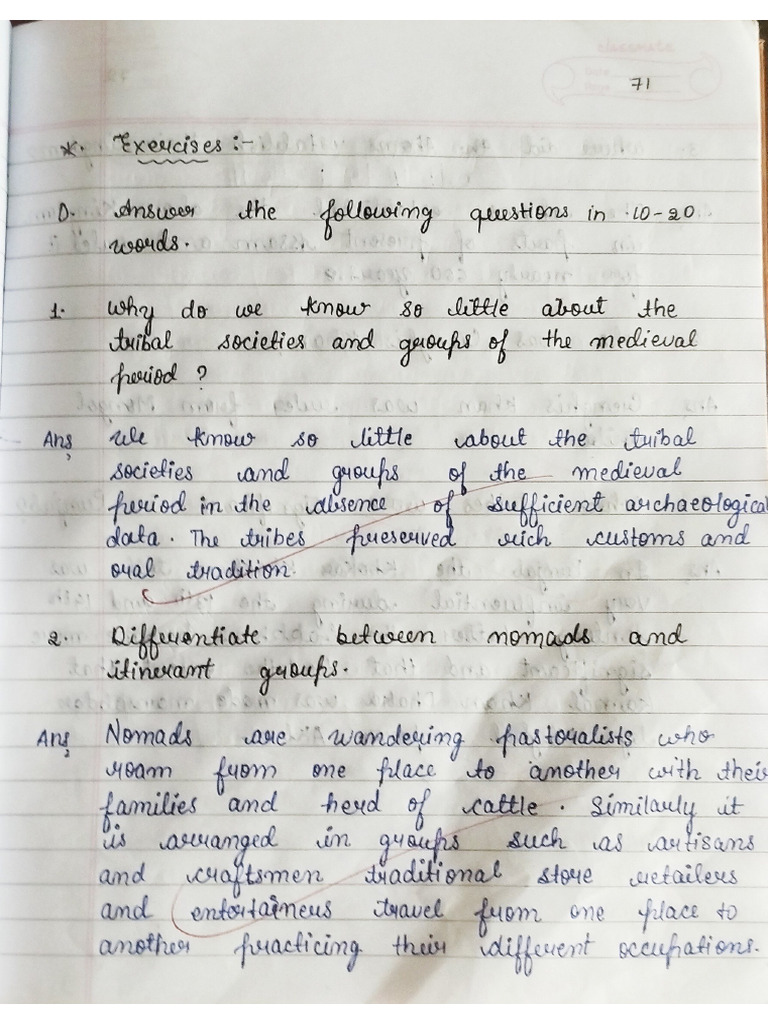 classmate
71
*. Exercises :-
D. Answer the following questions in 10-20
words.
1. Why do we know so little about the
tribal societies and groups of the medieval
period ?
Ans, We know so little about the tribal
societies and groups of the medieval
period in the absence of sufficient archaeological
data. The tribes preserved rich customs and
oral tradition.
2. Differentiate between nomads and
itinerant groups.
Ans, Nomads are wandering pastoralists who
roam from one place to another with their
families and herd of cattle. Similarly it
is arranged in groups such as artisans
and craftsmen traditional store retailers
and entertainers travel from one place to
another practicing their different occupations.